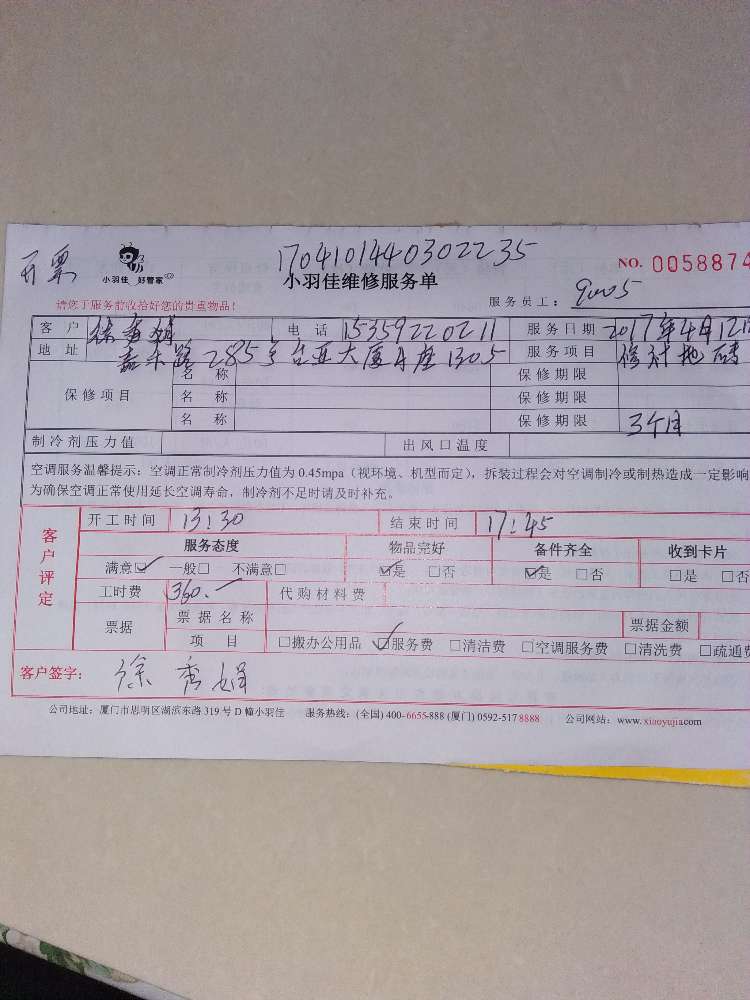 开票
1704101440302235
小羽佳 好管家
小羽佳维修服务单
NO. 0058874
请您于服务前收拾好您的贵重物品!
服务员工: 9005
客 户 徐秀娟 电 话 15359220211 服务日期 2017年4月12日
地 址 嘉禾路285号台亚大厦A座1305 服务项目 修补地砖
保修项目 名 称 保修期限
名 称 保修期限
名 称 保修期限 3个月
制冷剂压力值 出风口温度
空调服务温馨提示:空调正常制冷剂压力值为0.45mpa(视环境、机型而定),拆装过程会对空调制冷或制热造成一定影响
为确保空调正常使用延长空调寿命,制冷剂不足时请及时补充。
客户评定
开工时间 13:30 结束时间 17:45
服务态度 物品完好 备件齐全 收到卡片
满意☑ 一般□ 不满意□ ☑是 □否 ☑是 □否 □是 □否
工时费 360.— 代购材料费
票据 票据名称 票据金额
项 目 □搬办公用品 ☑服务费 □清洁费 □空调服务费 □清洗费 □疏通费
客户签字: 徐秀娟
公司地址:厦门市思明区湖滨东路319号D幢小羽佳 服务热线:(全国)400-6655-888 (厦门)0592-5178888 公司网站:www.xiaoyujia.com